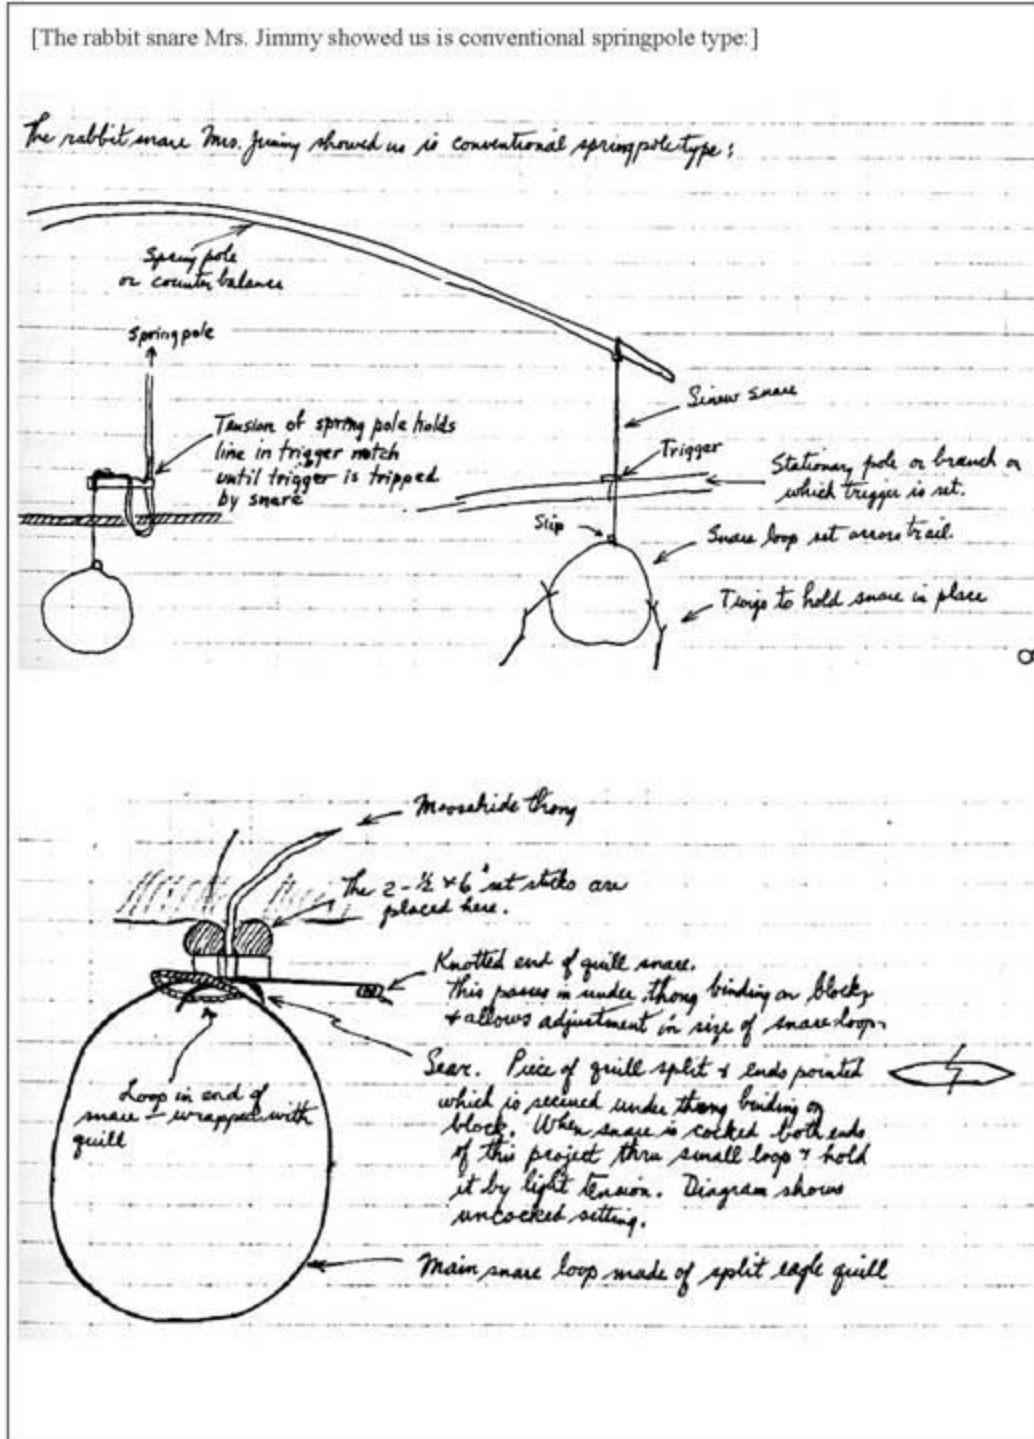 [The rabbit snare Mrs. Jimmy showed us is conventional springpole type:]
The rabbit snare Mrs. Jimmy showed us is conventional spring pole type:
Spring pole
or counter balance
Spring pole
Tension of spring pole holds
line in trigger notch
until trigger is tripped
by snare
Sinew snare
Trigger
Stationary pole or branch on
which trigger is set.
Slip
Snare loop set across trail.
Twigs to hold snare in place
Moosehide thong
The 2 - ½ x 6" set sticks are
placed here.
Knotted end of quill snare.
This passes in under thong binding on block
+ allows adjustment in size of snare loop.
Sear. Piece of quill split + ends pointed
which is secured under thong binding on
block. When snare is cocked both ends
of this project thru small loop + hold
it by light tension. Diagram shows
uncocked setting.
Loop in end of
snare - wrapped with
quill
Main snare loop made of split eagle quill